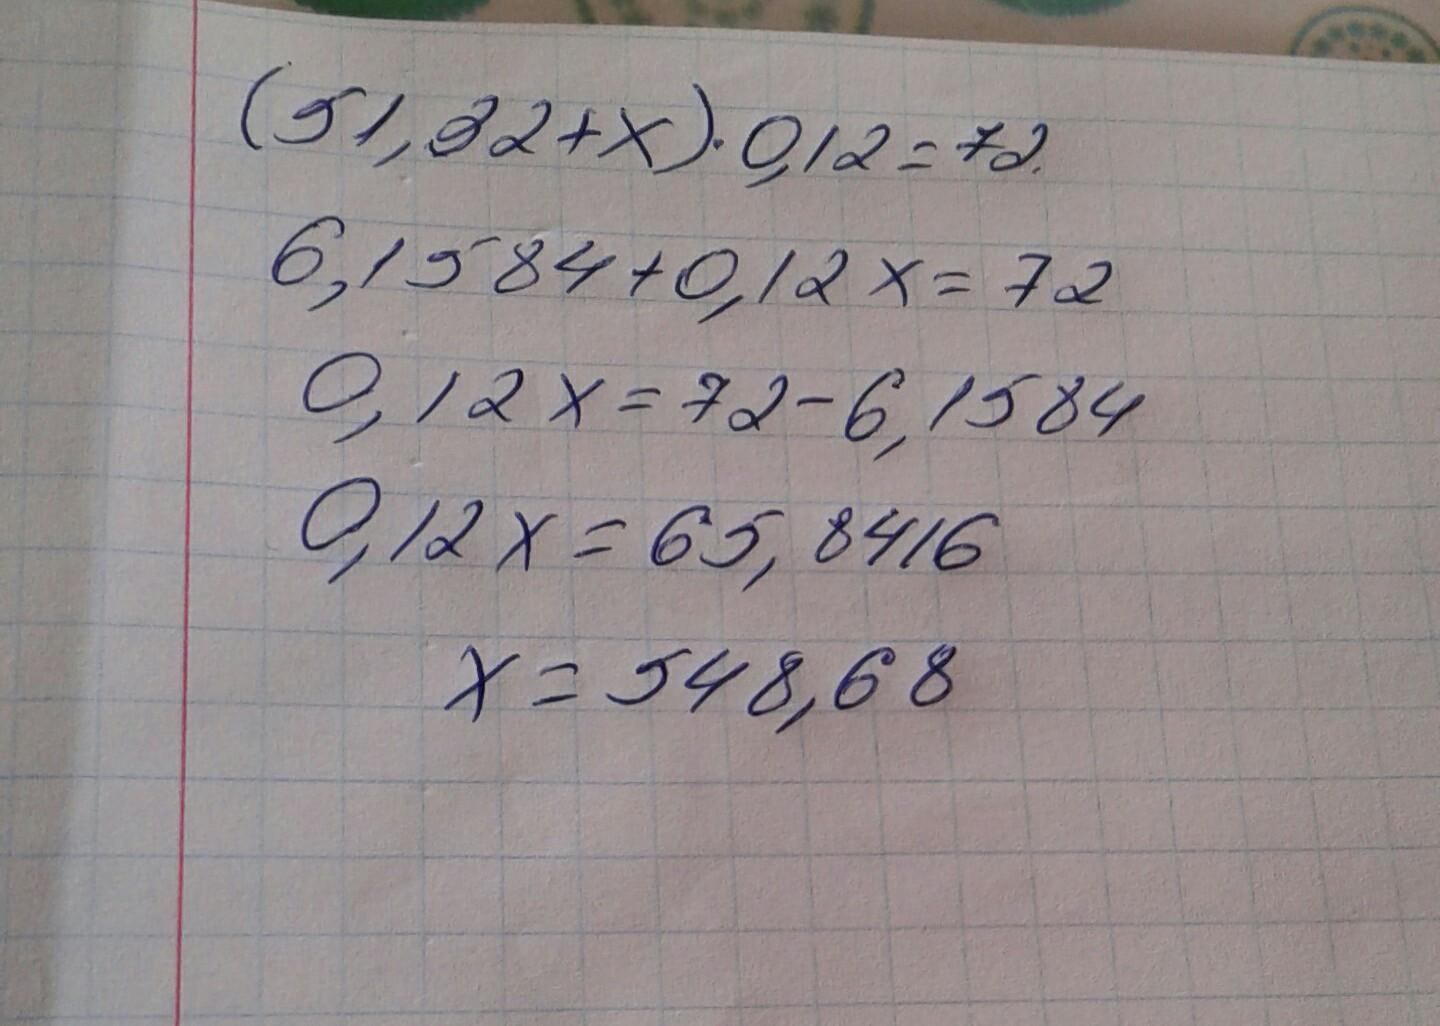 (51,32+x)·0,12=72.
6,1584+0,12x=72
0,12x=72-6,1584
0,12x=65,8416
x=548,68